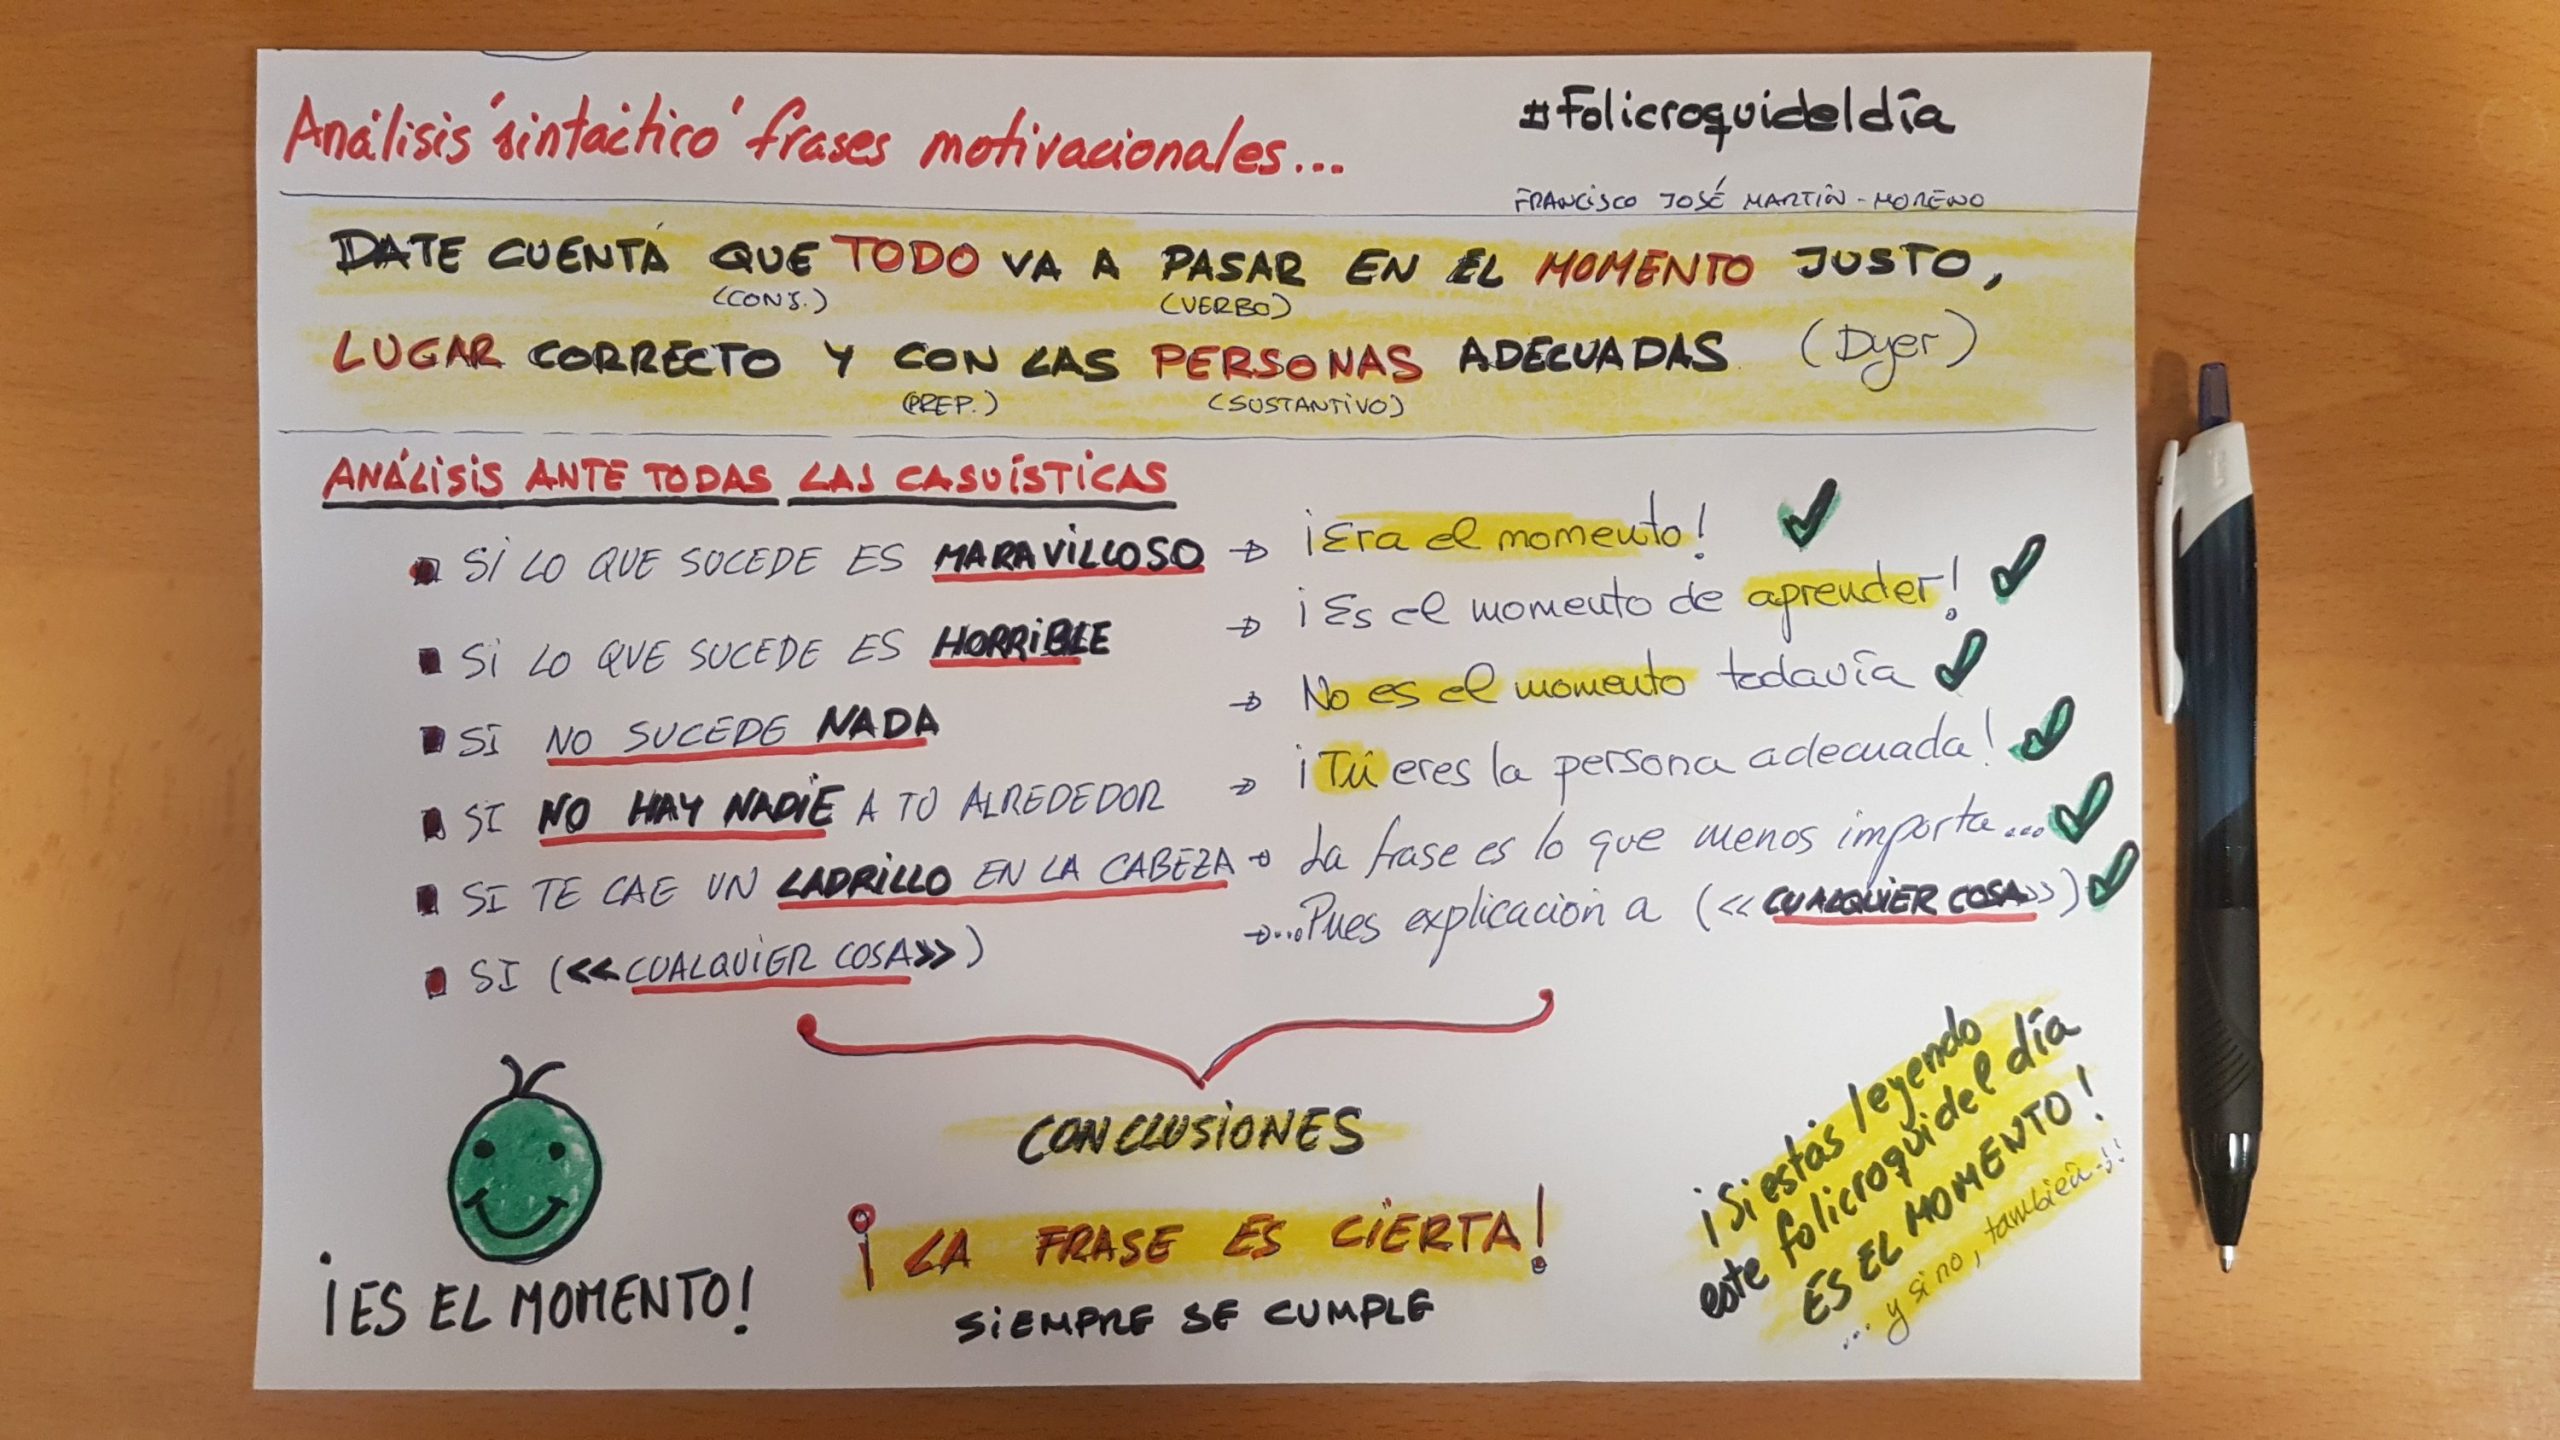 Análisis 'sintáctico' frases motivacionales...
#Folicroquideldía
FRANCISCO JOSÉ MARTÍN-MORENO
DATE CUENTA QUE TODO VA A PASAR EN EL MOMENTO JUSTO,
(CONJ.) (VERBO)
LUGAR CORRECTO Y CON LAS PERSONAS ADECUADAS (Dyer)
(PREP.) (SUSTANTIVO)
ANÁLISIS ANTE TODAS LAS CASUÍSTICAS
SI LO QUE SUCEDE ES MARAVILLOSO → ¡Era el momento! ✓
SI LO QUE SUCEDE ES HORRIBLE → ¡Es el momento de aprender! ✓
SI NO SUCEDE NADA → No es el momento todavía ✓
SI NO HAY NADIE A TU ALREDEDOR → ¡Tú eres la persona adecuada! ✓
SI TE CAE UN LADRILLO EN LA CABEZA → La frase es lo que menos importa... ✓
SI (<<CUALQUIER COSA>>) → ...Pues explicación a (<<CUALQUIER COSA>>) ✓
CONCLUSIONES
¡LA FRASE ES CIERTA!
SIEMPRE SE CUMPLE
¡ES EL MOMENTO!
¡Si estás leyendo
este folicroquidel día
ES EL MOMENTO!
... y si no, también..!!